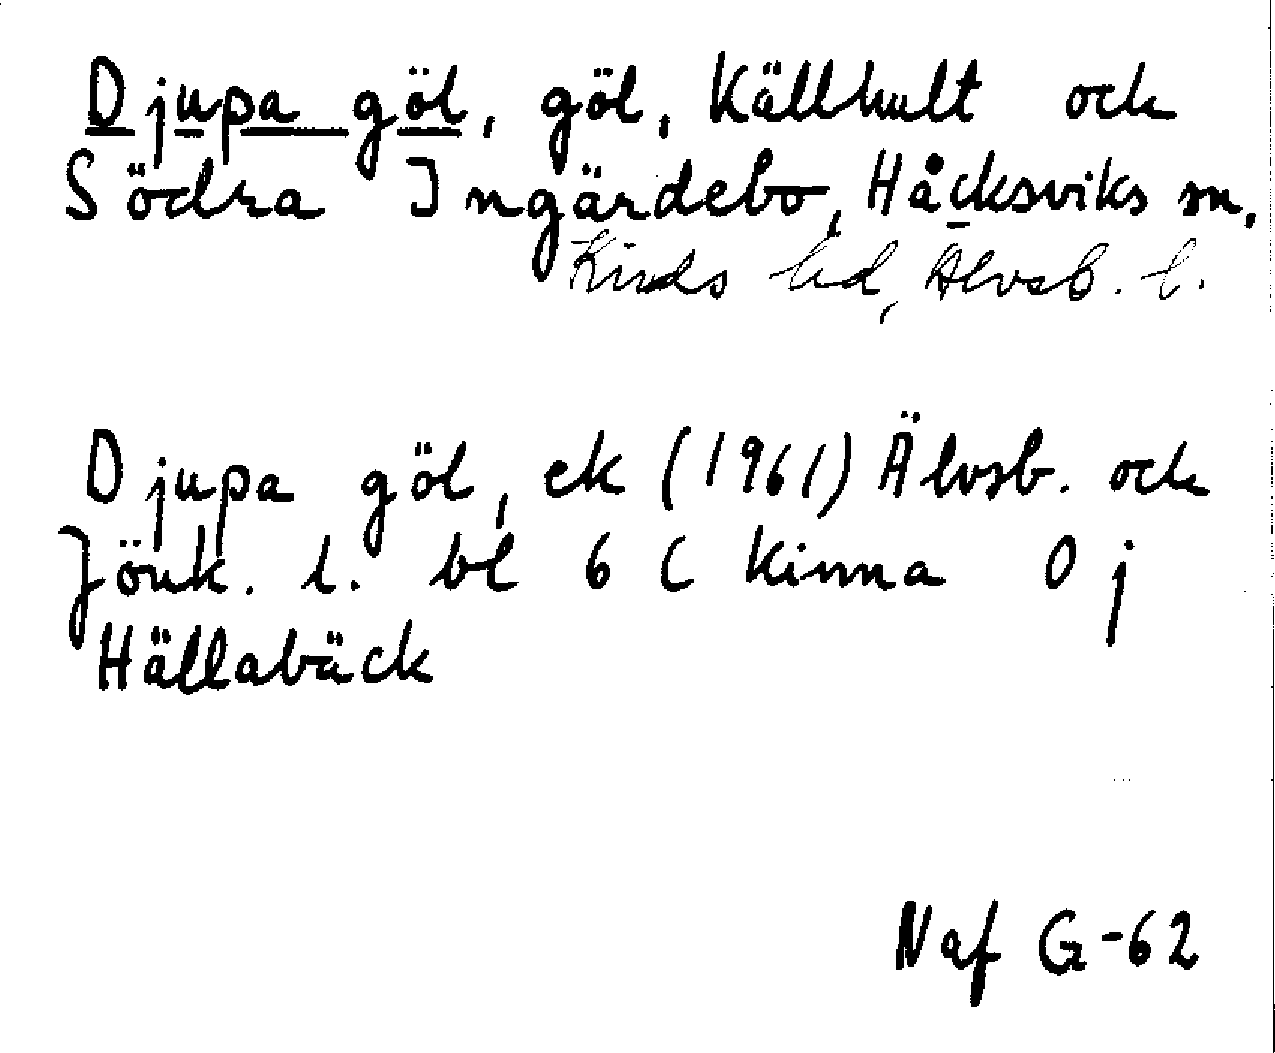 Djupa göl, göl, Källhult och
Södra Ingärdebo, Håcksviks sn,
Kinds hd, Älvsb. l.
Djupa göl, ek (1961) Älvsb. och
Jönk. l. bl 6 C Kinna 0 j
Hällabäck
Naf G-62